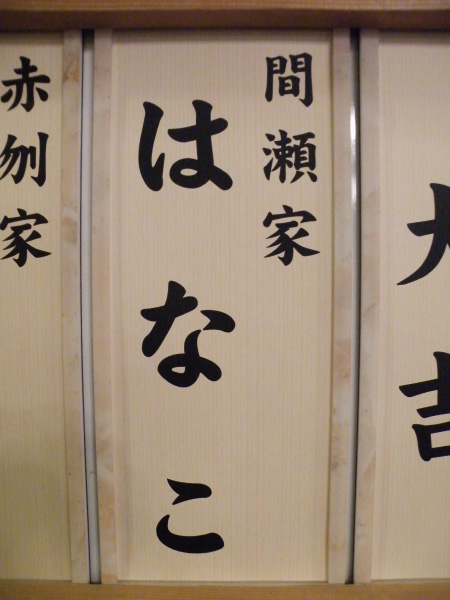 大吉
間瀬家
はなこ
赤刎家